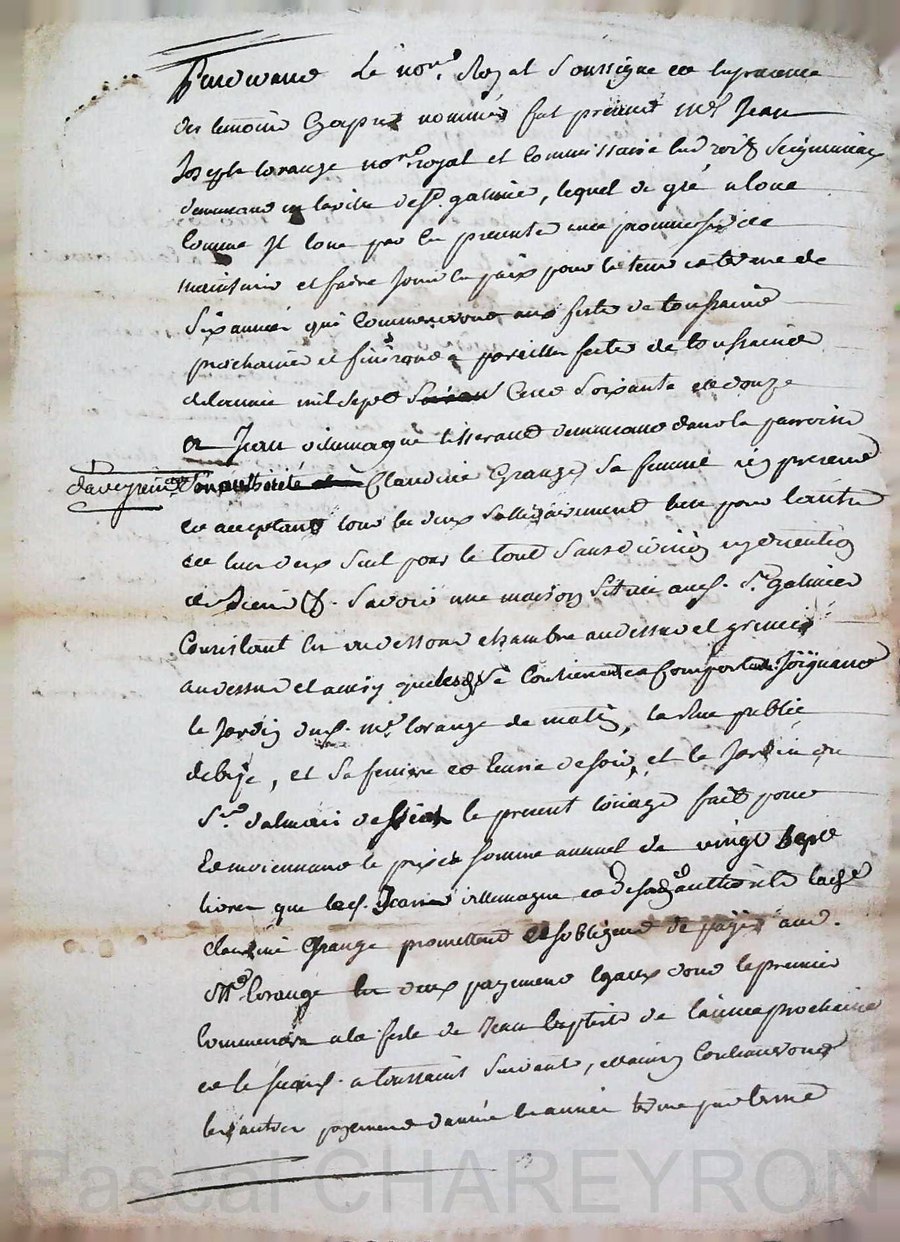 Pardevant Le no.re Royal Soussigné et En presence
des temoins Cy apres nommés fut present m.e Jean
Joseph Lorange no.re royal et Commissaire En droits Seigneuriaux
demeurant en la ville de S.t galmier, lequel de gré a loué
Comme Il loue par Ces presentes avec promesse de
maintenir et faire Jouir En paix pour le tems et terme de
Six années qui Commenceront aux feste de toussaint
prochaine et finiront a pareille feste de toussaint
de Lannée mil Sept Cent Soixante et douze
a Jean villemagne tisserand demeurant dans la paroisse
daveyzieu Claudine Grange Sa femme icy presents
et acceptants tous les deux Sollidairement L'un pour Lautre
et Lun deux Seul pour le tout Sans division ny discution
Savoir une maison Scituée aud. S.t galmier
Consistant En un dessous chambre au dessus et grenier
au dessus et ainsy quelle Se Contient et Comporte Joignant
le Jardin dud. m.e lorange de matin, la Rue publique
debize, et Sa feniere et Ecurie de Soir, et le Jardin du
S.r dalmais le present louage fait pour
Et moiennant le prix et Somme annuel de vingt Sept
livres que led. Jean villemagne et de Son authorité lad.e
claudine Grange promettent et Sobligent de payer aud.
M.e lorange En deux payements Egaux dont le premier
Commencera a la feste de Jean baptiste de lannée prochaine
et le Second a toussaint Suivant, et ainsy Continueront
les autres payements dannée En année terme par terme
Pascal CHAREYRON